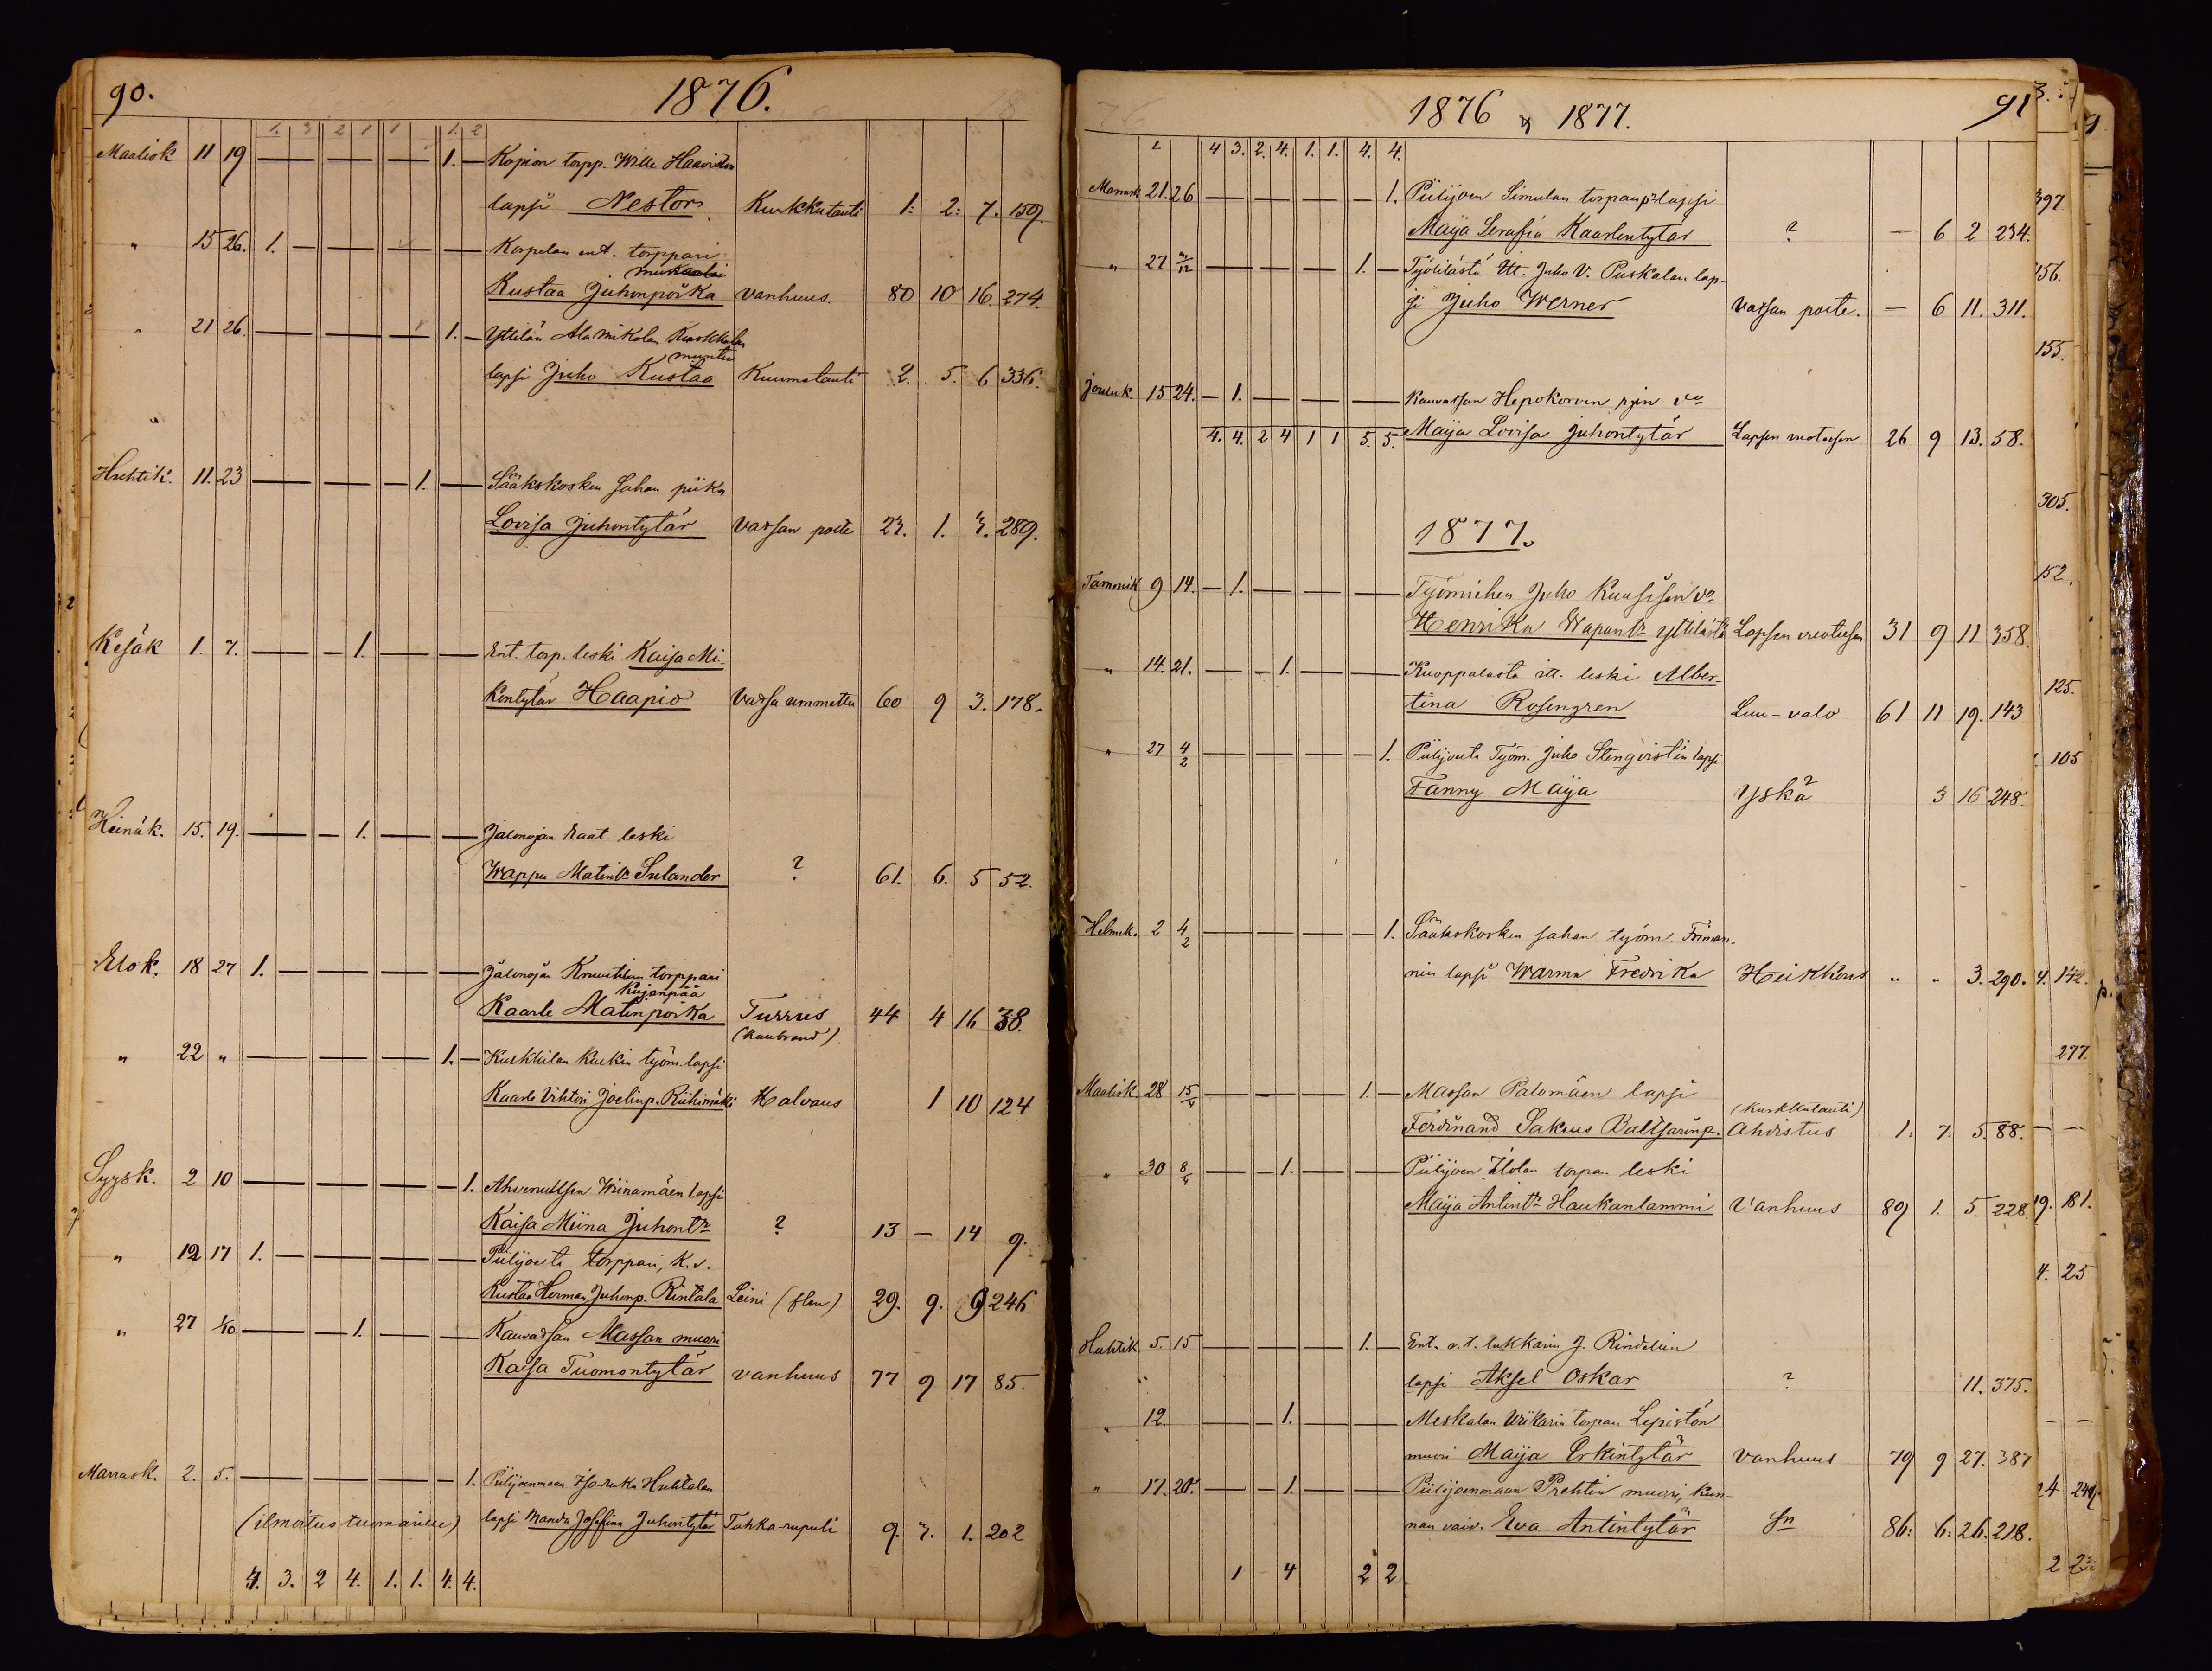 90.
1876.
1. 3 2 1 1 1. 2
Maalisk 11 19 1. Kopion torpp. Wille Haaviston
lapsi Nestor Kurkkutauti 1: 2: 7. 159.
" 15 26. 1. Korpelan ent. torppari
Kustaa Juhonpoika vanhuus. 80 10 16. 274.
" 21 26. 1. Yttilän Ala Mikolan Kuskkalan
lapsi Juho Kustaa Kuumetauti 2. 5. 6 336.
Huhtik. 11. 23 1. Sääkskosken Sahan piika
Lovisa Juhontytär Vatsan polte 23. 1. 3. 289.
Kesäk 1. 7. 1. Ent. torp. leski Kaisa Mi-
kontytär Haapio Vatsa ummettu 60 9 3. 178.
Heinäk. 15. 19. 1. Jalonojan leski
Wappu Matintr Sulander ? 61. 6. 5 52.
Elok. 18 27 1. Jalonojan torppari
Kujanpää
Kaarle Matinpoika Turrus 44 4 16 38.
(kaubrand)
" 22 " 1. Kurkkilan Kurkin työm. lapsi
Kaarle Vihtori Joelinp. Riihimäki Halvaus 1 10 124
Syysk. 2 10 1. Ahvenuksen Wiinamäen lapsi
Kaisa Miina Juhontr ? 13 — 14 9.
" 12 17 1. Piilijoelta torppari, K. v.
Kustaa Herman Juhonp. Rintala Leini (flen) 29. 9. 9 246
" 27 1/10 1. Kauvatsan Massan muori
Kaisa Tuomontytär vanhuus 77 9 17 85.
Marrask. 2. 5. 1. Piilijoenmaan Iso-ruka Huhtalan
(ilmoitus tuomarille) lapsi Manda Josefina Juhontytär Tuhka-rupuli 9. 7. 1. 202
4. 3. 2 4. 1. 1. 4. 4.
1876 & 1877.
91
4 3. 2. 4. 1. 1. 4. 4.
Marrask 21. 26 1. Piilijoen Simulan torpanp. lapsi
Maija Serafia Kaarlentytär ? — 6 2 234.
" 27 3/12 1. Työtilästä Itt. Juho V. Puskalan lap-
si Juho Werner vatsan polte. — 6 11. 311.
Jouluk. 15 24. 1. Kauvatsan Hepokorven rgin vo
4. 4. 2 4 1 1 5. 5. Maija Lovisa Juhontytär Lapsen vuoteesen 26 9 13. 58.
1877.
Tammik 9 14. 1. Työmiehen Juho Kuusisen vo
Henrika Wapuntr Yttilästä Lapsen vuoteesen 31 9 11 358.
" 14. 21. 1. Kuoppalasta itt. leski Alber-
tina Rosengren Luu-valo 61 11 19. 143
" 27 4/2 1. Piilijoelta Työm. Juho Stenqvistin lapsi
Fanny Maija Yskä 3 16 248.
Helmik. 2 4/2 1. Sääkskosken sahan työm. Friman-
nin lapsi Warma Fredrika Heikkous " " 3. 290.
Maalisk. 28 15/4 1. Massan Palomäen lapsi
(Kurkkutauti)
Ferdinand Sakeus Baltsarinp. Ahdistus 1: 7: 5. 88.
" 30 8/4 1. Piilijoen Ilolan torpan leski
Maija Antintr Haukanlammi Vanhuus 89 1. 5. 228.
Huhtik. 5. 15 1. Ent. v.t. lukkarin J. Rindelin
lapsi Aksel Oskar ? 11. 375.
" 12. 1. Meskalan Wiikarin torpan Lepistön
muori Maija Erkintytär Vanhuus 79 9 27. 387
" 17. 20. 1. Piilijoenmaan Prehtin muori, kun-
nan vaiv. Eva Antintytär Sn 86: 6: 26. 218.
1 4 2 2
397
156.
155.
305.
152.
125.
105
4. 142.
277.
19. 181.
4. 25